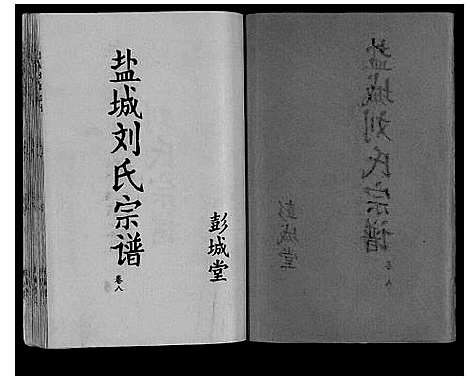 盐城刘氏宗谱
卷八
彭城堂